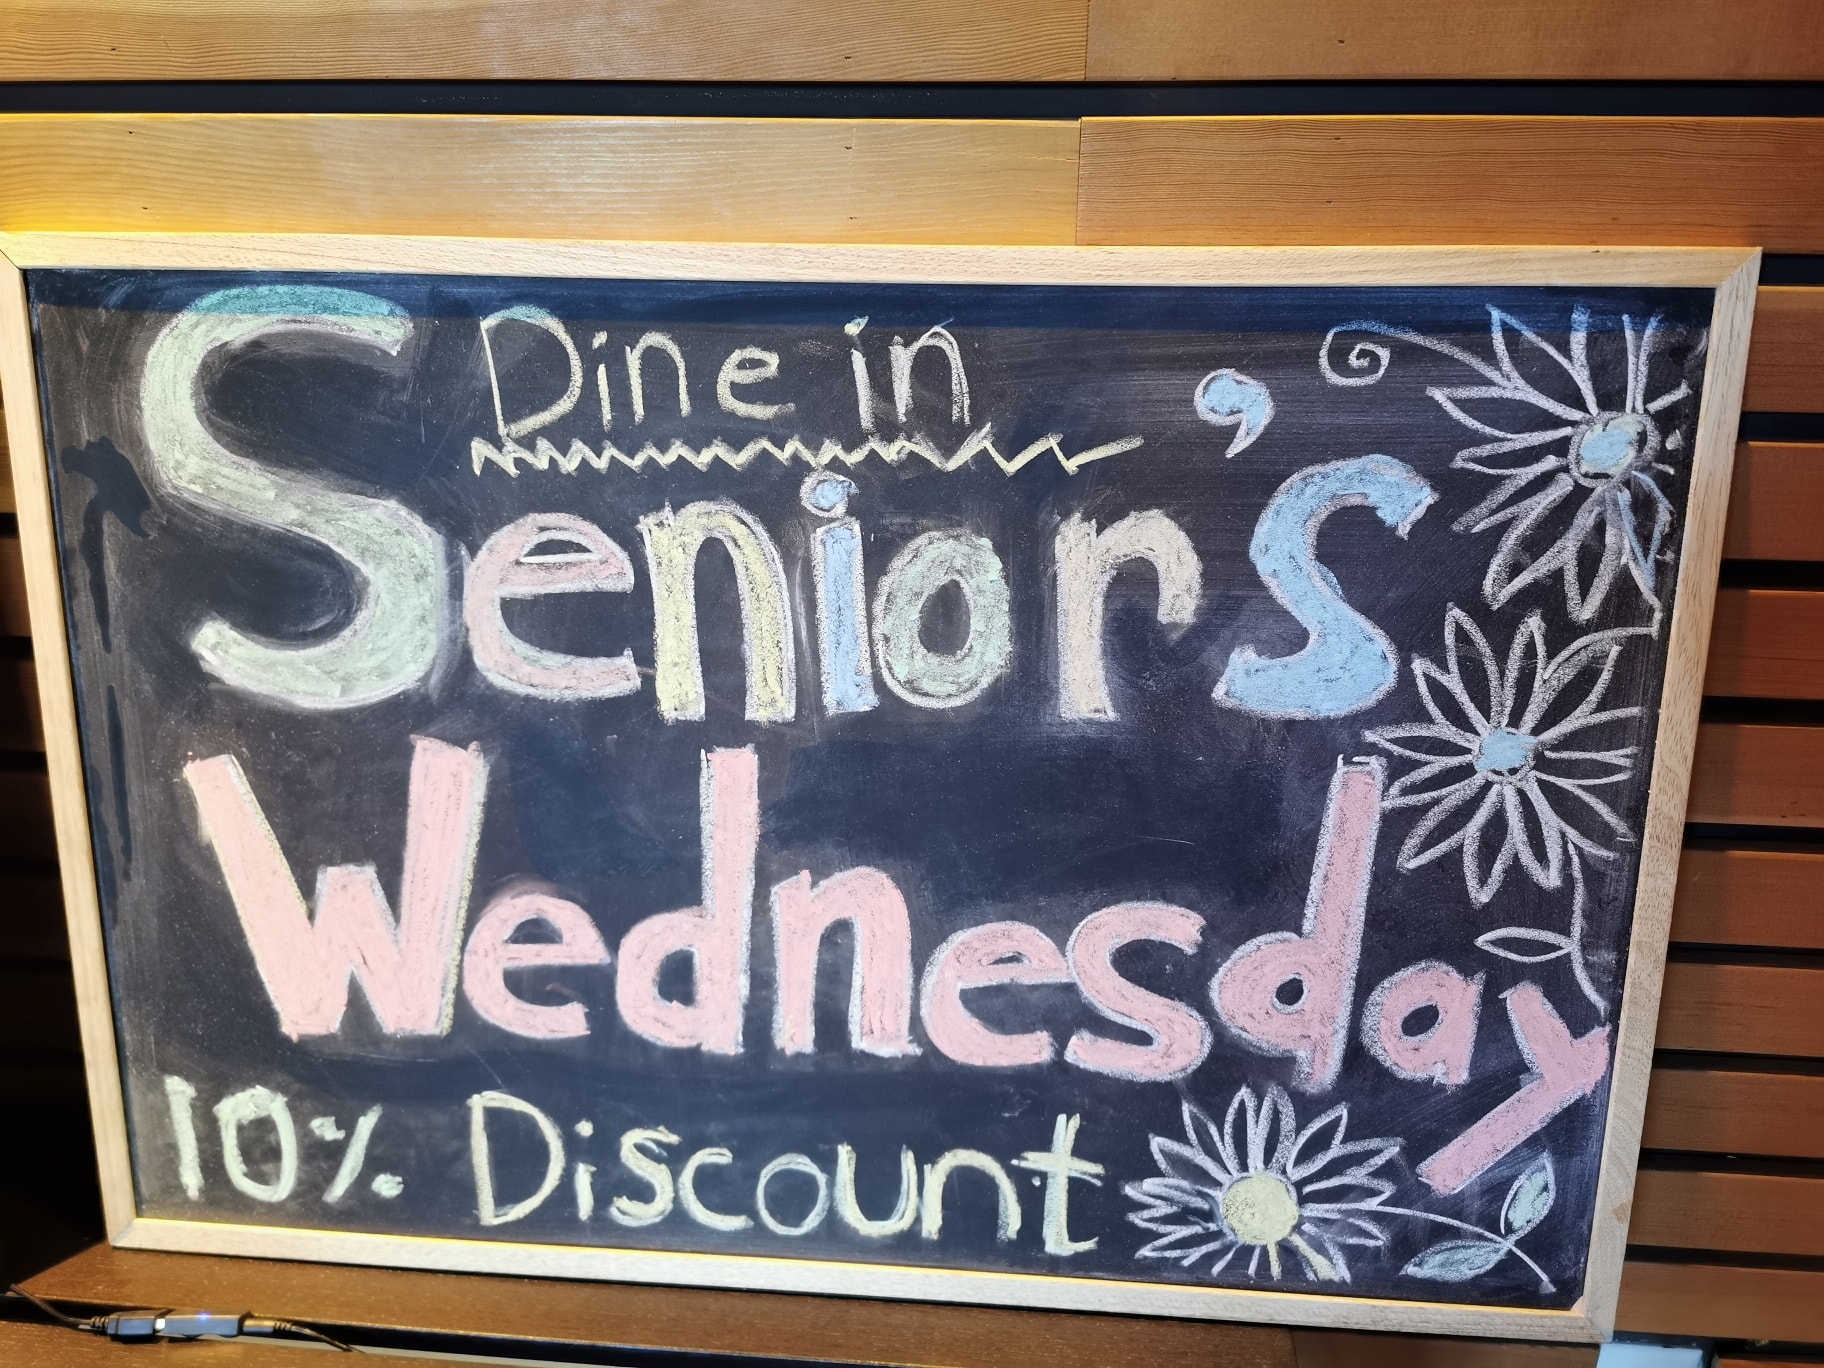 Dine in
Senior's
Wednesday
10% Discount